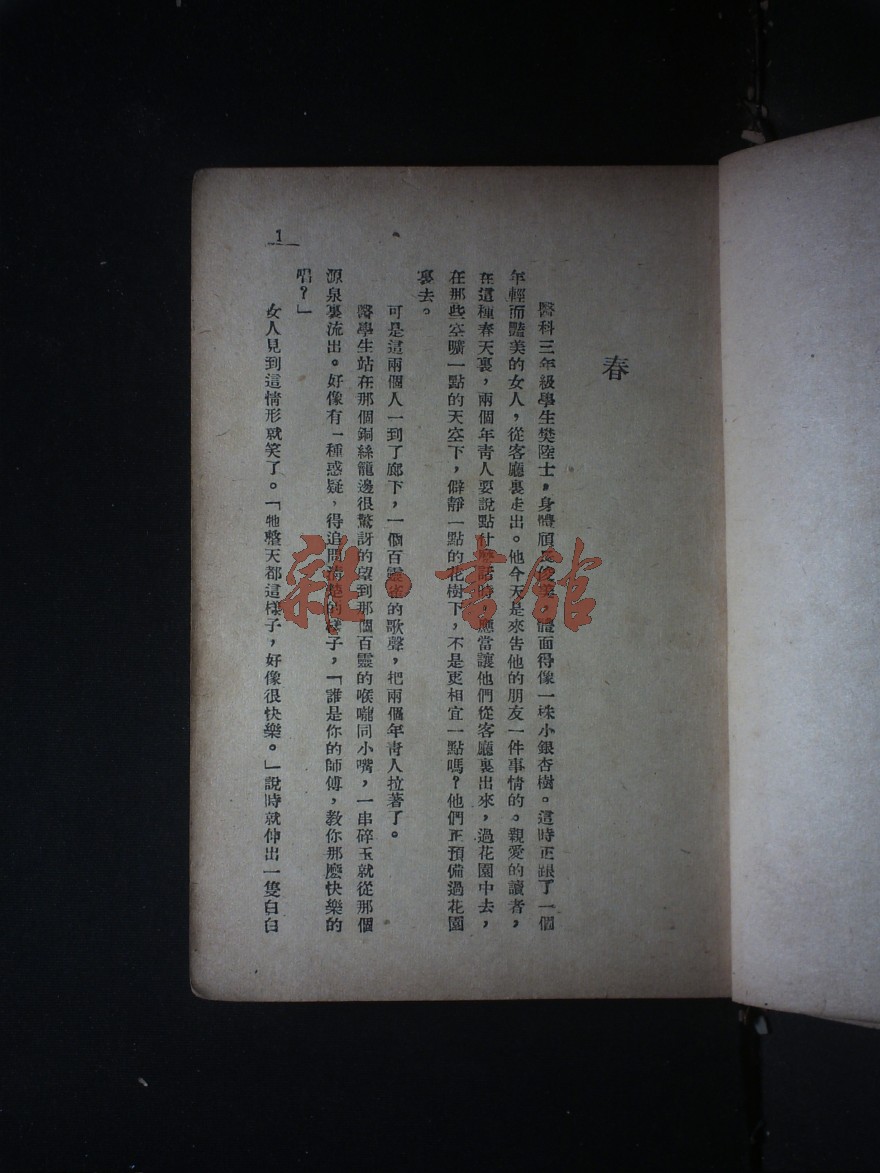 春
醫科三年級學生樊陸士，身體頎長俊美，體面得像一株小銀杏樹。這時正跟了一個
年輕而豔美的女人，從客廳裏走出。他今天是來告他的朋友一件事情的。親愛的讀者，
在這種春天裏，兩個年青人要說點什麼話時，應當讓他們從客廳裏出來，過花園中去，
在那些空曠一點的天空下，僻靜一點的花樹下，不是更相宜一點嗎？他們正預備過花園
裏去。
可是這兩個人一到了廊下，一個百靈雀的歌聲，把兩個年青人拉著了。
醫學生站在那個銅絲籠邊很驚訝的望到那個百靈的喉嚨同小嘴，一串碎玉就從那個
源泉裏流出。好像有一種惑疑，得追問清楚的樣子，「誰是你的師傅，教你那麼快樂的
唱？」
女人見到這情形就笑了。「牠整天都這樣子，好像很快樂。」說時就伸出一隻白白
1
雜·書館